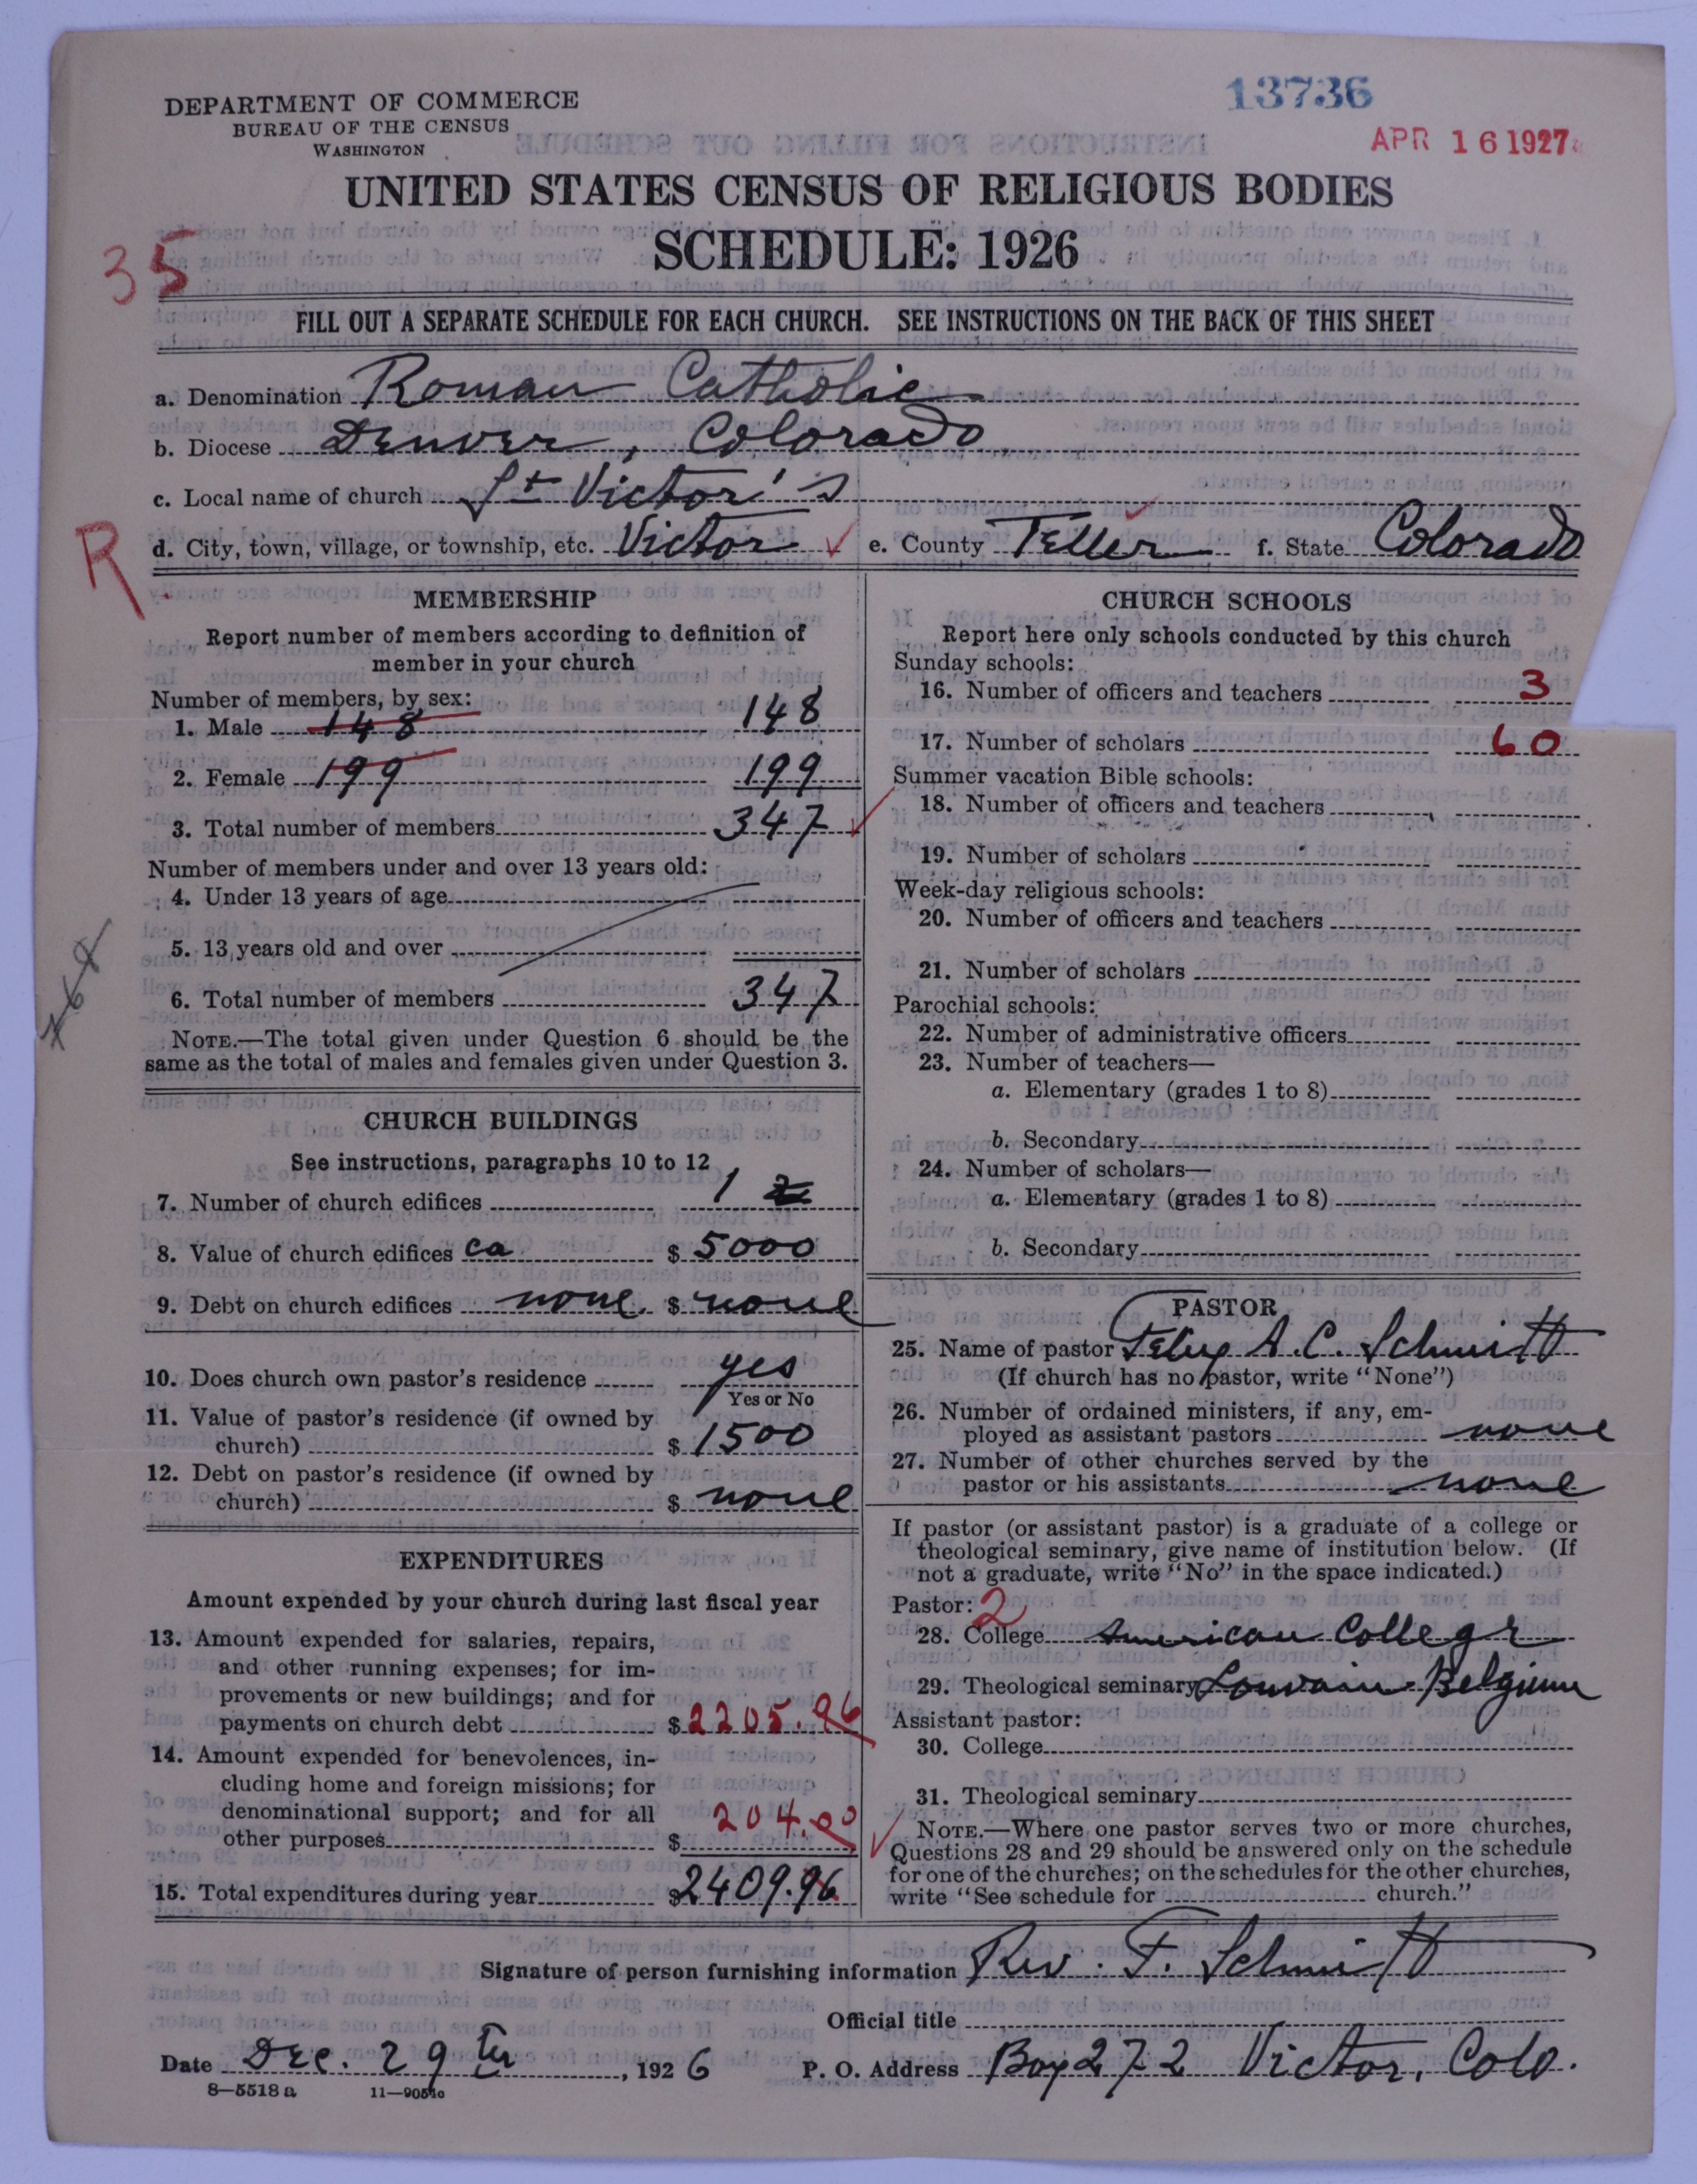 13736
APR 16 1927
DEPARTMENT OF COMMERCE
BUREAU OF THE CENSUS
WASHINGTON
UNITED STATES CENSUS OF RELIGIOUS BODIES
SCHEDULE: 1926
35
FILL OUT A SEPARATE SCHEDULE FOR EACH CHURCH. SEE INSTRUCTIONS ON THE BACK OF THIS SHEET
a. Denomination Roman Catholic
b. Diocese Denver, Colorado
c. Local name of church St Victor's
R
d. City, town, village, or township, etc. Victor e. County Teller f. State Colorado
MEMBERSHIP
Report number of members according to definition of
member in your church
Number of members, by sex:
1. Male 148 148
2. Female 199 199
3. Total number of members 347
Number of members under and over 13 years old:
4. Under 13 years of age
5. 13 years old and over
6. Total number of members 347
NOTE.—The total given under Question 6 should be the
same as the total of males and females given under Question 3.
CHURCH BUILDINGS
See instructions, paragraphs 10 to 12
7. Number of church edifices 1
8. Value of church edifices ca $ 5000
9. Debt on church edifices none. $ none
10. Does church own pastor's residence yes
Yes or No
11. Value of pastor's residence (if owned by
church) $ 1500
12. Debt on pastor's residence (if owned by
church) $ none
EXPENDITURES
Amount expended by your church during last fiscal year
13. Amount expended for salaries, repairs,
and other running expenses; for im-
provements or new buildings; and for
payments on church debt $ 2205.96
14. Amount expended for benevolences, in-
cluding home and foreign missions; for
denominational support; and for all
other purposes $ 204.00
15. Total expenditures during year $ 2409.96
CHURCH SCHOOLS
Report here only schools conducted by this church
Sunday schools:
16. Number of officers and teachers 3
17. Number of scholars 60
Summer vacation Bible schools:
18. Number of officers and teachers
19. Number of scholars
Week-day religious schools:
20. Number of officers and teachers
21. Number of scholars
Parochial schools:
22. Number of administrative officers
23. Number of teachers—
a. Elementary (grades 1 to 8)
b. Secondary
24. Number of scholars—
a. Elementary (grades 1 to 8)
b. Secondary
PASTOR
25. Name of pastor A. C. Schmitt
(If church has no pastor, write "None")
26. Number of ordained ministers, if any, em-
ployed as assistant pastors none
27. Number of other churches served by the
pastor or his assistants none
If pastor (or assistant pastor) is a graduate of a college or
theological seminary, give name of institution below. (If
not a graduate, write "No" in the space indicated.)
Pastor: 2
28. College American College
29. Theological seminary Louvain-Belgium
Assistant pastor:
30. College
31. Theological seminary
NOTE.—Where one pastor serves two or more churches,
Questions 28 and 29 should be answered only on the schedule
for one of the churches; on the schedules for the other churches,
write "See schedule for church."
Signature of person furnishing information Rev. F. Schmitt
Official title
Date Dec. 29th, 1926 P. O. Address Box 272 Victor, Colo.
8—5518 a 11—9051c